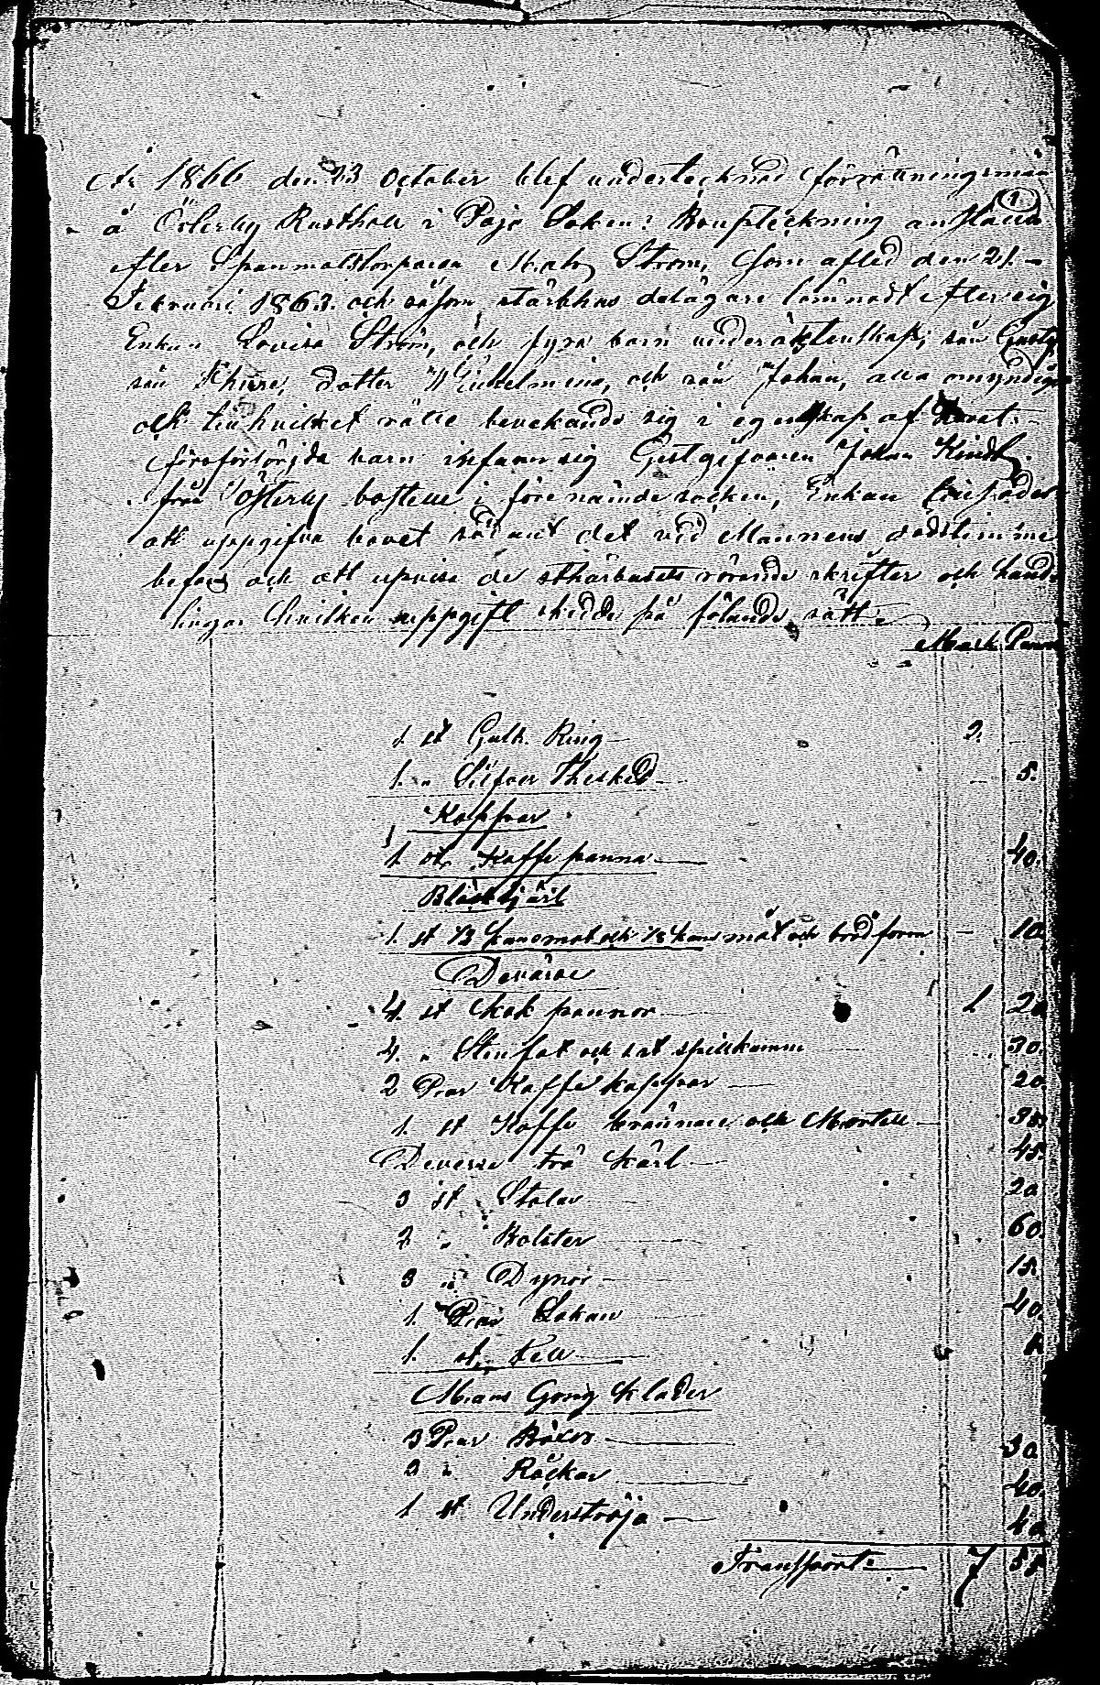 År 1866 den 23 October blef undertecknad förrättningsmän
å Österby Rusthåll i Pojo Soken: Boupteckning anstäld
efter Spanmålstorparen Math Ström, som afled den 21
Februari 1863. och såsom stärbhus delägare lämnadt efter sig
Enkan Lovisa Ström, och fyra barn under äktenskap, sån Gustaf
sån dotter Willhelmina, och sån Johan, alla omyndige
och till hvilket rätts bevakande sig i egenskap af
barn infann sig Gestgifvaren Johan
från Österby bostelle i förenämde socken, Enkan
att uppgifva bovet sådant det vid Mannens dödstimme
befans och att upvisa de stärbusets rörande skrifter och hand-
lingar hvilken uppgift skedde på följande sätt:
Mark Penni
1. st Guld. Ring 2.
1. " Silfver Thesked 5.
Koppar
1 st. Kaffe panna 40.
Bläckkjäril
1. st ½ kanomåt och ⅛ kans måt och brödform 10
Devärse
4. st Kok pannor 1 20
4. " Stenfat och 1 st spillkumm 30.
2 Par Kaffe koppar 20.
1. st Kaffe brännare och Mortell 35.
Deverse trä kärl 45.
3 st Stolar 20
2 " Bolster 60.
3 " Dynor 15.
1. Par Lakan 40.
1. st. Fell
Mans Gong Kläder
3 Par Böxor 30
2 " Råckar 40.
1 st Understroja 40
Transport 7 55